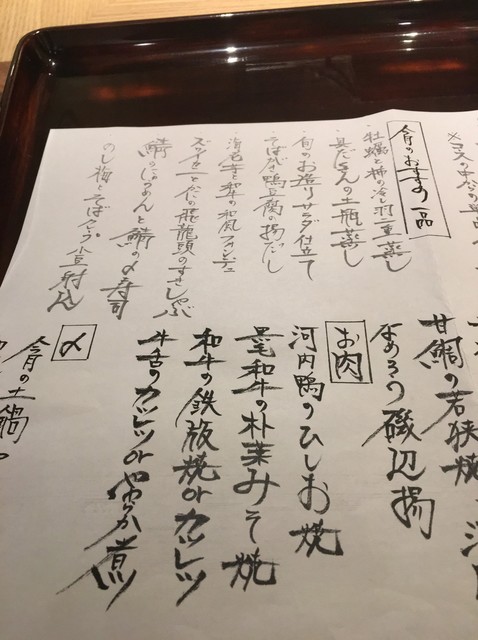 今月のおすすめ一品
牡蠣と柿の冷し羽二重蒸し
具だくさんの土瓶蒸し
旬のお造りサラダ仕立て
そばがき鴨豆腐の揚だし
海老芋と和牛の和風フォンデュ
ズワイガニとの飛龍頭のすきしゃぶ
鯖のじゅうめんと鯖の〆寿司
のし梅とそば
甘鯛の若狭焼
なめろう磯辺揚
お肉
河内鴨のひしお焼
黒毛和牛の朴葉みそ焼
和牛の鉄板焼orカツレツ
牛舌のカツレツorやわらか煮
〆
今月の土鍋